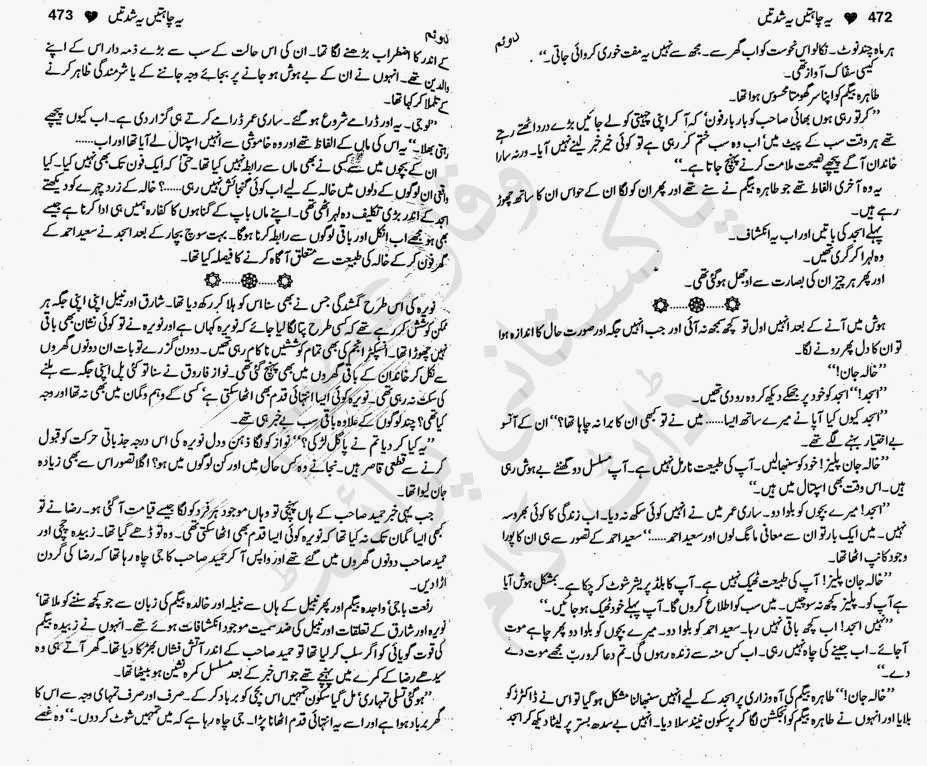 472 یہ چاہتیں یہ شدتیں
دوئم
ہر ماہ چند نوٹ۔ نکالو اس نحوست کو اب گھر سے۔ مجھ سے نہیں یہ مفت خوری کروائی جاتی۔‘‘
کیسی سفاک آواز تھی۔
طاہرہ بیگم کو اپنا سر گھومتا محسوس ہوا تھا۔
’’کر تو رہی ہوں بھائی صاحب کو بار بار فون‘ کہ آ کر اپنی چہیتی کو لے جائیں بڑے درد اٹھتے رہتے
تھے ہر وقت سب کے پیٹ میں‘ اب وہ سب ختم کر رہی ہے تو کوئی خیر خبر لینے نہیں آیا۔ ورنہ سارا
خاندان آگے پیچھے نصیحت ملامت کرنے پہنچ جاتا ہے۔‘‘
یہ وہ آخری الفاظ تھے جو طاہرہ بیگم نے سنے تھے اور پھر ان کو لگا ان کے حواس ان کا ساتھ چھوڑ
رہے ہیں۔
پہلے امجد کی باتیں اور اب یہ انکشاف۔
وہ لہرا کر گری تھیں۔
اور پھر ہر چیز ان کی بصارت سے اوجھل ہو گئی تھی۔
ہوش میں آنے کے بعد انہیں اول تو کچھ سمجھ نہ آئی اور جب انہیں جگہ اور صورت حال کا اندازہ ہوا
تو ان کا دل پھر رونے لگا۔
’’خالہ جان!‘‘
’’امجد!‘‘ امجد کو خود پر جھکے دیکھ کر وہ رو دی تھیں۔
’’امجد کیوں کیا آپا نے میرے ساتھ ایسا...... میں نے تو کبھی ان کا برا نہ چاہا تھا؟‘‘ ان کے آنسو
بے اختیار بہنے لگے تھے۔
’’خالہ جان پلیز! خود کو سنبھالیں۔ آپ کی طبیعت نارمل نہیں ہے۔ آپ مسلسل دو گھنٹے بے ہوش رہی
ہیں۔ اس وقت بھی اسپتال میں ہیں۔‘‘
’’امجد! میرے بچوں کو بلوا دو۔ ساری عمر میں نے انہیں کوئی سکھ نہ دیا۔ اب زندگی کا کوئی بھروسہ
نہیں۔ میں ایک بار تو ان سے معافی مانگ لوں اور سعید احمد......‘‘ سعید احمد کے تصور سے ہی ان کا پورا
وجود کانپ اٹھا تھا۔
’’خالہ جان پلیز! آپ کی طبیعت ٹھیک نہیں ہے۔ آپ کا بلڈ پریشر شوٹ کر چکا ہے۔ بمشکل ہوش آیا
ہے آپ کو۔ پلیز کچھ نہ سوچیں۔ میں سب کو اطلاع کروں گا۔ آپ پہلے خود ٹھیک ہو جائیں۔‘‘
’’نہیں امجد! اب کچھ باقی نہیں رہا۔ سعید احمد کو بلوا دو۔ میرے بچوں کو بلوا دو پھر چاہے موت
آ جائے۔ اب جینے کی چاہ نہیں رہی۔ اب کس منہ سے زندہ رہوں گی۔ تم دعا کرو ربّ مجھے موت دے
دے۔‘‘
’’خالہ جان!‘‘ طاہرہ بیگم کی آہ و زاری پر امجد کے لیے انہیں سنبھالنا مشکل ہو گیا تو اس نے ڈاکٹرز کو
بلایا اور انہوں نے طاہرہ بیگم کو انجکشن لگا کر پرسکون نیند سلا دیا۔ انہیں بے سدھ بستر پر لیٹا دیکھ کر امجد
یہ چاہتیں یہ شدتیں 473
دوئم
کے اندر کا اضطراب بڑھنے لگا تھا۔ ان کی اس حالت کے سب سے بڑے ذمہ دار اس کے اپنے
والدین تھے۔ انہوں نے ان کے بے ہوش ہو جانے پر بجائے وجہ جاننے کے یا شرمندگی ظاہر کرنے
کے تلملا کر کہا تھا۔
’’لو جی۔ یہ اور ڈرامے شروع ہو گئے۔ ساری عمر ڈرامے کرتے ہی گزار دی ہے۔ اب کیوں پیچھے
رہتی بھلا۔‘‘ یہ اس کی ماں کے الفاظ تھے اور وہ خاموشی سے انہیں اسپتال لے آیا تھا اور اب......
ان کے بچوں میں سے کسی نے بھی ماں سے رابطہ نہیں کیا تھا۔ حتیٰ کہ ایک فون تک بھی نہیں کیا۔ کیا
واقعی ان لوگوں کے دلوں میں خالہ کے لیے اب کوئی گنجائش نہیں رہی......؟ خالہ کے زرد چہرے کو دیکھتے
امجد کے اندر بڑی تکلیف دہ لہر اٹھی تھی۔ اپنے ماں باپ کے گناہوں کا کفارہ ہمیں ہی ادا کرنا ہے جیسے
بھی ہو مجھے اب انکل اور باقی لوگوں سے رابطہ کرنا ہوگا۔ بہت سوچ بچار کے بعد امجد نے سعید احمد کے
گھر فون کر کے خالہ کی طبیعت سے متعلق آگاہ کرنے کا فیصلہ کیا تھا۔
نویرہ کی اس طرح گمشدگی جس نے بھی سنا اس کو ہلا کر رکھ دیا تھا۔ شارق اور نبیل اپنی اپنی جگہ ہر
ممکن کوشش کر رہے تھے کہ کسی طرح پتا لگا لیا جائے کہ نویرہ کہاں ہے اور نویرہ نے تو کوئی نشان بھی باقی
نہیں چھوڑا تھا۔ انسپکٹر انجم کی بھی تمام کوششیں ناکام رہی تھیں۔ دو دن گزرے تو بات ان دونوں گھروں
سے نکل کر خاندان کے باقی گھروں میں بھی پہنچ گئی تھی۔ نواز فاروق نے سنا تو کئی پل اپنی جگہ سے ہلنے
کی سکت نہ رہی تھی۔ نویرہ کوئی ایسا انتہائی قدم بھی اٹھا سکتی ہے‘ کسی کے وہم و گمان میں بھی نہ تھا اور وجہ
کیا تھی؟ چند لوگوں کے علاوہ باقی سب بے خبر ہی تھے۔
’’یہ کیا کر دیا تم نے پاگل لڑکی؟‘‘ نواز کو لگا ذہن و دل نویرہ کی اس درجہ جذباتی حرکت کو قبول
کرنے سے قطعی قاصر ہیں۔ نجانے وہ کس حال میں اور کن لوگوں میں ہو؟ اگلا تصور اس سے بھی زیادہ
جان لیوا تھا۔
جب یہی خبر حمید صاحب کے ہاں پہنچی تو وہاں موجود ہر فرد کو لگا جیسے قیامت آ گئی ہو۔ رضا نے تو
کبھی ایسا گمان تک نہ کیا تھا کہ نویرہ کوئی ایسا قدم بھی اٹھا سکتی تھی۔ وہ تو ڈھے گیا تھا۔ زبیدہ چچی اور
حمید صاحب دونوں گھروں میں گئے تھے اور واپس آ کر حمید صاحب کا جی چاہ رہا تھا کہ رضا کی گردن
اڑا دیں۔
رفعت باجی‘ واجدہ بیگم اور پھر نبیل کے ہاں سے نبیلہ اور خالدہ بیگم کی زبان سے جو کچھ سننے کو ملا تھا‘
نویرہ اور شارق کے تعلقات اور نبیل کی ضد سمیت موجود انکشافات ہوئے تھے۔ انہوں نے زبیدہ بیگم
کی قوت گویائی کو اگر سلب کر لیا تھا تو حمید صاحب کے اندر آتش فشاں بھڑکا دیا تھا۔ گھر آتے ہی وہ
سیدھے رضا کے کمرے میں پہنچے تھے جو اس خبر کے بعد مسلسل کمرہ نشین ہو بیٹھا تھا۔
’’ہو گئی تسلی تمہاری‘ مل گیا سکون تمہیں اس بچی کو برباد کر کے۔ صرف اور صرف تمہاری وجہ سے اس کا
گھر برباد ہوا ہے اور اسے یہ انتہائی قدم اٹھانا پڑا۔ جی چاہ رہا ہے کہ میں تمہیں شوٹ کر دوں۔‘‘ وہ غصے